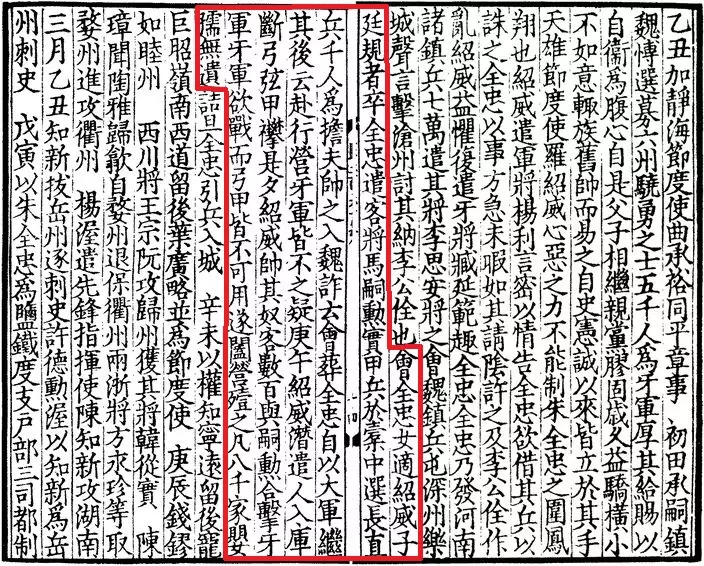 乙丑加靜海節度使曲承裕同平章事　初田承嗣鎮
魏博選募六州驍勇之士五千人爲牙軍厚其給賜以
自衞爲腹心自是父子相繼親黨膠固歳久益驕橫小
不如意輒族舊帥而易之自史憲誠以來皆立於其手
天雄節度使羅紹威心惡之力不能制朱全忠之圍鳳
翔也紹威遣軍將楊利言密以情告全忠欲借其兵以
誅之全忠以事方急未暇如其請隂許之及李公佺作
亂紹威益懼復遣牙將臧延範趣全忠全忠乃發河南
諸鎮兵七萬遣其將李思安將之會魏鎮兵屯深州樂
城聲言擊滄州討其納李公佺也會全忠女適紹威子
廷規者卒全忠遣客將馬嗣勲實甲兵於橐中選長直
兵千人爲擔夫帥之入魏詐云會葬全忠自以大軍繼
其後云赴行營牙軍皆不之疑庚午紹威潛遣人入庫
斷弓弦甲襻是夕紹威帥其奴客數百與嗣勲合擊牙
軍牙軍欲戰而弓甲皆不可用遂闔營殪之凡八千家嬰
孺無遺詰旦全忠引兵入城　辛未以權知寧遠留後龐
巨昭嶺南西道留後葉廣略並爲節度使　庚辰錢鏐
如睦州　西川將王宗阮攻歸州獲其將韓從實　陳
璋聞陶雅歸歙自婺州退保衢州兩浙將方永珍等取
婺州進攻衢州　楊渥遣先鋒指揮使陳知新攻湖南
三月乙丑知新拔岳州逐刺史許德勲渥以知新爲岳
州刺史　戊寅以朱全忠爲鹽鐵度支戸部三司都制